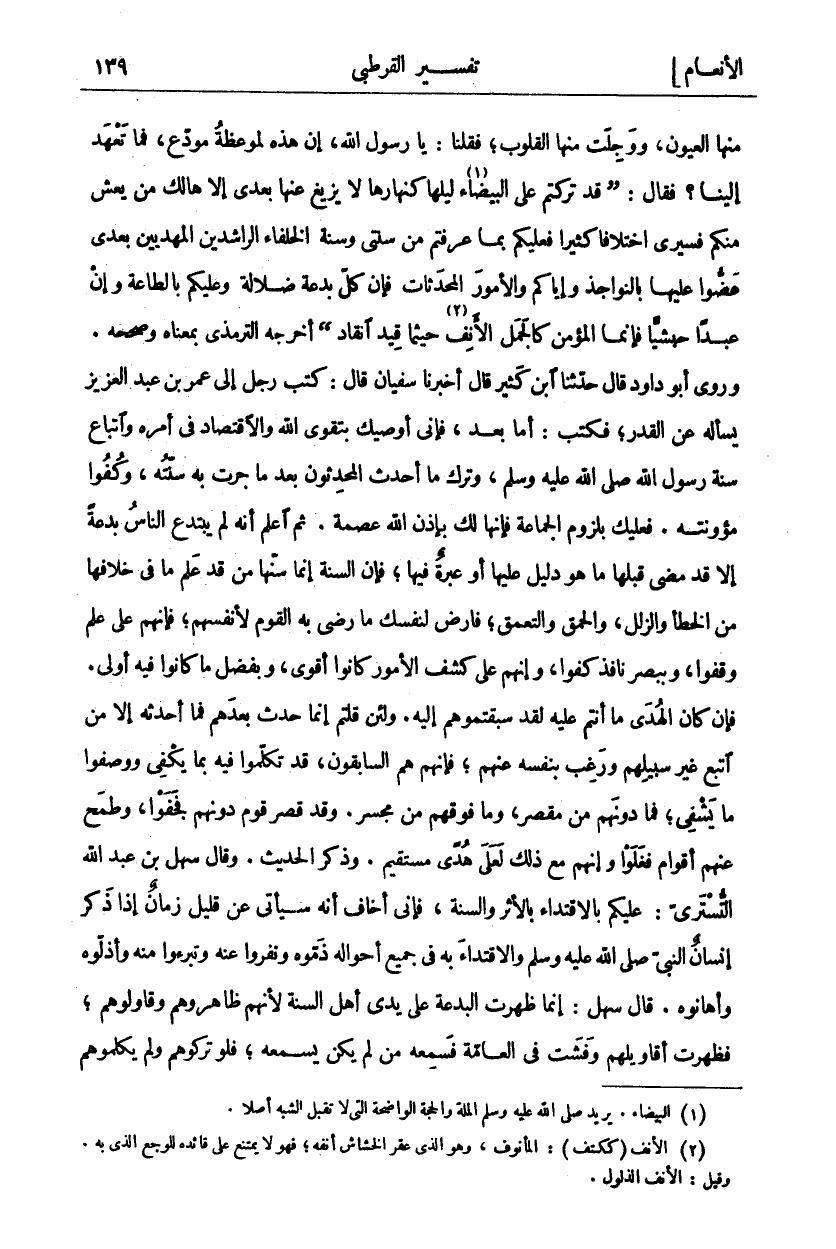 الأنعام] تفســـير القرطبى ١٣٩
منها العيون، ووَجِلَت منها القلوب؛ فقلنا : يا رسول الله، إن هذه لموعظةُ مودّع، فما تَعْهَد
إلينا؟ فقال : ”قد تركتم على البيضاء(١) ليلها كنهارها لا يزيغ عنها بعدى إلا هالك من يعش
منكم فسيرى اختلافا كثيرا فعليكم بما عرفتم من سنتى وسنة الخلفاء الراشدين المهديين بعدى
عَضُّوا عليها بالنواجذ وإياكم والأمورَ المحدَثات فإن كلّ بدعة ضلالة وعليكم بالطاعة وإنْ
عبدًا حبشيًّا فإنما المؤمن كالجَمل الأَنِف(٢) حيثما قِيد آنقاد“ أخرجه الترمذى بمعناه وصححه .
وروى أبو داود قال حدّثنا آبن كَثير قال أخبرنا سفيان قال : كتب رجل إلى عمر بن عبد العزيز
يسأله عن القدر؛ فكتب : أما بعد ، فإنى أوصيك بتقوى الله والاقتصاد فى أمره وآتباع
سنة رسول الله صلى الله عليه وسلم ، وترك ما أحدث المحدِثون بعد ما جرت به سنّتُه ، وكُفُوا
مؤونتـه . فعليك بلزوم الجماعة فإنها لك بإذن الله عصمة . ثم آعلم أنه لم يبتدع الناسُ بدعةً
إلا قد مضى قبلها ما هو دليل عليها أو عبرةٌ فيها ؛ فإن السنة إنما سنّها من قد عَلم ما فى خلافها
من الخطأ والزلل، والحمق والتعمق؛ فارض لنفسك ما رضى به القوم لأنفسهم؛ فإنهم على علم
وقفوا، وببصر نافذ كفوا، وإنهم على كشف الأمور كانوا أقوى، وبفضل ما كانوا فيه أولى.
فإن كان الهُدَى ما أنتم عليه لقد سبقتموهم إليه. ولئن قلتم إنما حدث بعدَهم فما أحدثه إلا من
آتبع غير سبيلهم ورَغِب بنفسه عنهم ؛ فإنهم هم السابقون، قد تكلّموا فيه بما يكْفِى ووصفوا
ما يَشْفِى؛ فما دونَهم من مقصر، وما فوقهم من مجسر. وقد قصر قوم دونهم فجَفَوْا، وطمَح
عنهم أقوام فغَلَوْا وإنهم مع ذلك لَعَلَى هُدًى مستقيم . وذكر الحديث . وقال سهل بن عبد الله
التُّسْتَرِىّ : عليكم بالاقتداء بالأثر والسنة ، فإنى أخاف أنه سيأتى عن قليل زمانٌ إذا ذَكر
إنسانٌ النبىّ صلى الله عليه وسلم والاقتداءَ به فى جميع أحواله ذمّوه ونفروا عنه وتبرءوا منه وأذلّوه
وأهانوه . قال سهل : إنما ظهرت البدعة على يدى أهل السنة لأنهم ظاهروهم وقاولوهم ؛
فظهرت أقاويلهم وفَشَت فى العامّة فسَمِعه من لم يكن يسمعه ؛ فلو تركوهم ولم يكلموهم
(١) البيضاء . يريد صلى الله عليه وسلم الملة والحجة الواضحة التى لا تقبل الشبه أصلا .
(٢) الأنف (ككتف) : المأنوف ، وهو الذى عقر الخشاش أنفه؛ فهو لا يمتنع على قائده للوجع الذى به .
وقيل : الأنف الذلول .